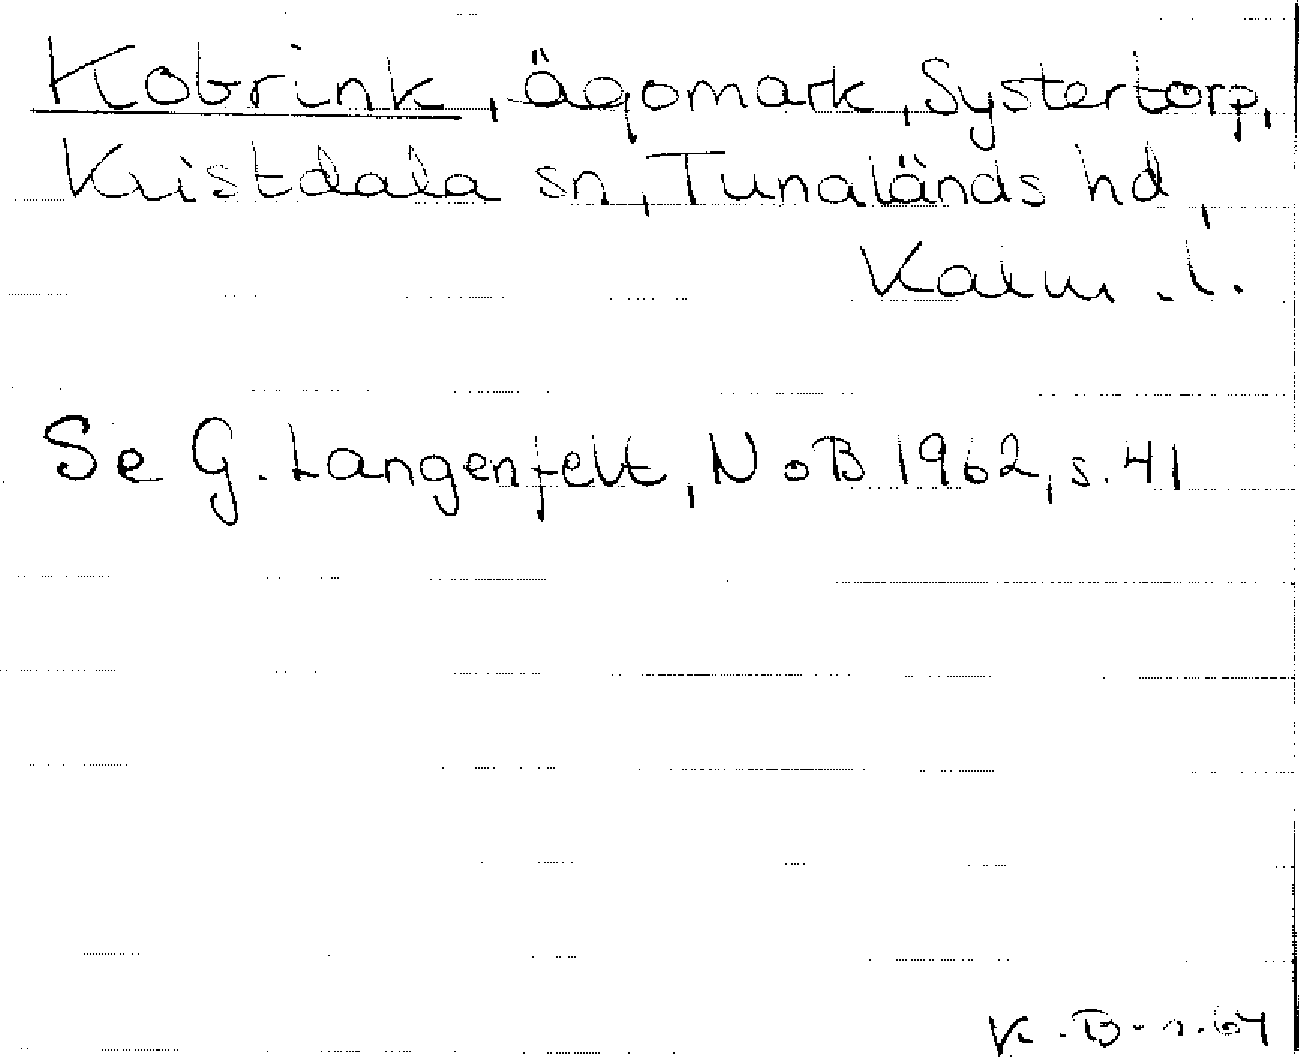 Kobrink, ägomark, Systertorp,
Kristdala sn, Tunaläns hd,
Kalm. l.
Se G. Langenfelt, NoB 1962, s. 41
K. B-n. 64